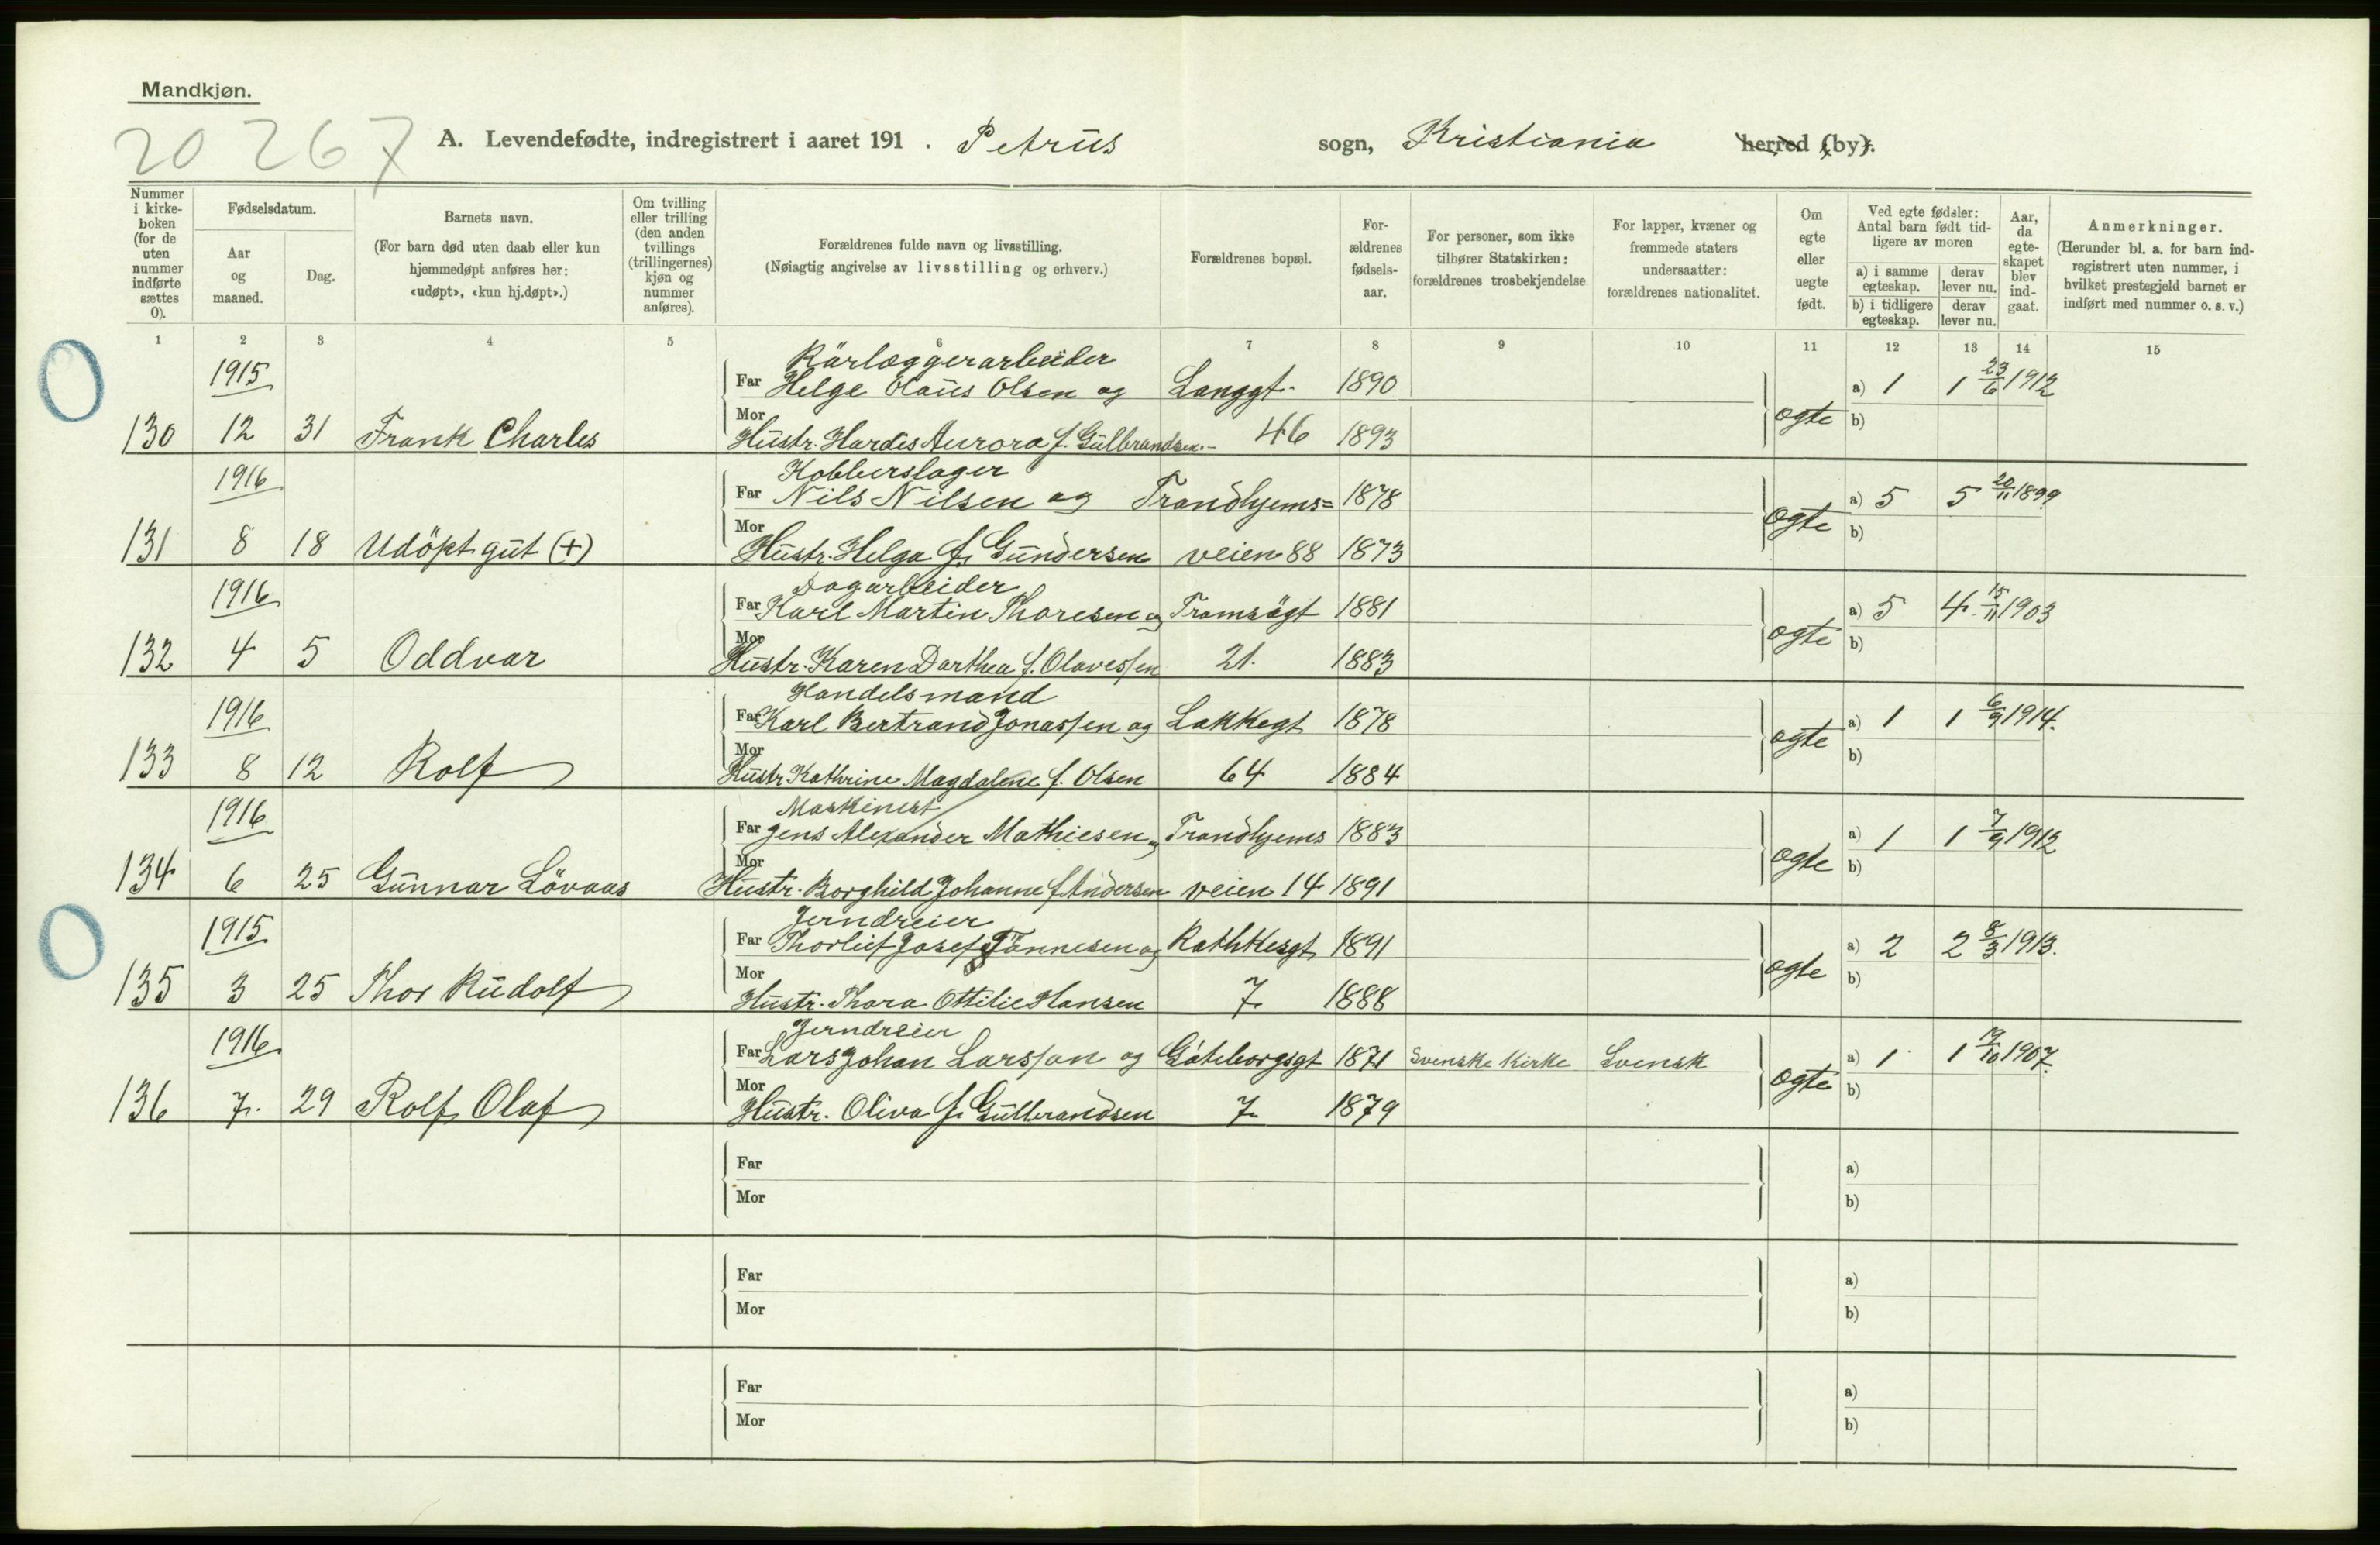 Mandkjøn.
20 267
A. Levendefødte, indregistrert i aaret 191 . Petrus sogn, Kristiania herred (by).
Nummer i kirkeboken (for de uten nummer indførte sættes 0).
Fødselsdatum.
Aar og maaned.
Dag.
Barnets navn.
(For barn død uten daab eller kun hjemmedøpt anføres her: «udøpt», «kun hj.døpt».)
Om tvilling eller trilling (den anden tvillings (trillingernes) kjøn og nummer anføres).
Forældrenes fulde navn og livsstilling.
(Nøiagtig angivelse av livsstilling og erhverv.)
Forældrenes bopæl.
For-ældrenes fødsels-aar.
For personer, som ikke tilhører Statskirken: forældrenes trosbekjendelse
For lapper, kvæner og fremmede staters undersaatter: forældrenes nationalitet.
Om egte eller uegte født.
Ved egte fødsler: Antal barn født tidligere av moren
a) i samme egteskap.
derav lever nu.
b) i tidligere egteskap.
derav lever nu.
Aar, da egte-skapet blev ind-gaat.
Anmerkninger.
(Herunder bl. a. for barn ind-registrert uten nummer, i hvilket prestegjeld barnet er indført med nummer o. s. v.)
1 2 3 4 5 6 7 8 9 10 11 12 13 14 15
1915 Rörlæggerarbeider
Far Helge Olaus Olsen og Langgt. 1890 a) 1 1 23/6 1912
Mor ægte b)
130 12 31 Frank Charles Hustr. Hardis Aurora f. Gulbrandsen. 46 1893
1916 Kobberslager
Far Nils Nilsen og Trondhjems= 1878 a) 5 5 20/11 1899
Mor ægte b)
131 8 18 Udöpt gut (+) Hustr. Helga f. Gundersen veien 88 1873
1916 Dagarbeider
Far Karl Martin Thoresen og Tromsögt 1881 a) 5 4. 15/11 1903
Mor ægte b)
132 4 5 Oddvar Hustr. Karen Dorthea f. Olavessen 21. 1883
1916 Handelsmand
Far Karl Bertrand Jonassen og Lakkegt 1878 a) 1 1 6/9 1914.
Mor ægte b)
133 8 12 Rolf Hustr Kathrine Magdalene f. Olsen 64 1884
1916 Maskinist
Far Jens Alexander Mathiesen og Trondhjems 1883 a) 1 1 7/9 1912
Mor ægte b)
134 6 25 Gunnar Lövaas Hustr. Borghild Johanne f Andersen veien 14 1891
1915 Jerndreier
Far Thorleif Josef Tönnesen og Rathkesgt 1891 a) 2 2 8/3 1913.
Mor ægte b)
135 3 25 Thor Rudolf Hustr. Thora Ottilie Hansen 7. 1888
1916 Jerndreier
Far Lars Johan Larsson og Göteborgsgt 1871 Svenske Kirke Svensk a) 1 1 19/10 1907.
Mor ægte b)
136 7. 29 Rolf Olaf Hustr. Oliva f. Gulbrandsen 7. 1879
Far a)
Mor b)
Far a)
Mor b)
Far a)
Mor b)